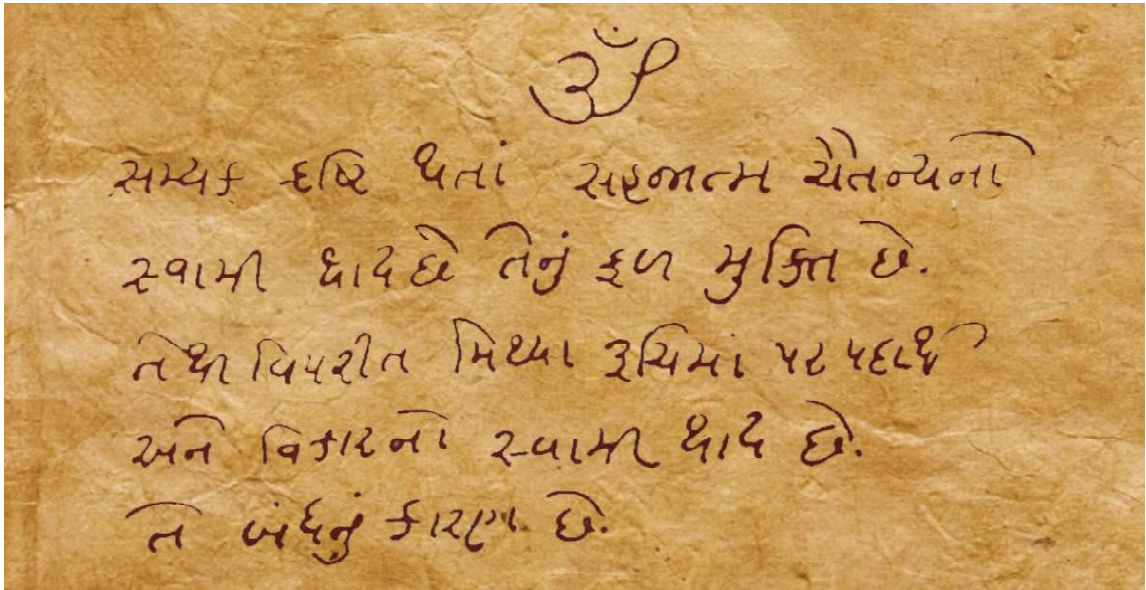 ૐ
સમ્યક દ્દષ્ટિ થતાં સહજાત્મ ચૈતન્યનો
સ્વામી થાય છે તેનું ફળ મુક્તિ છે.
તેથી વિપરીત મિથ્યા રૂચિમાં પર પદાર્થ
અને વિકારનો સ્વામી થાય છે.
તે બંધનું કારણ છે.